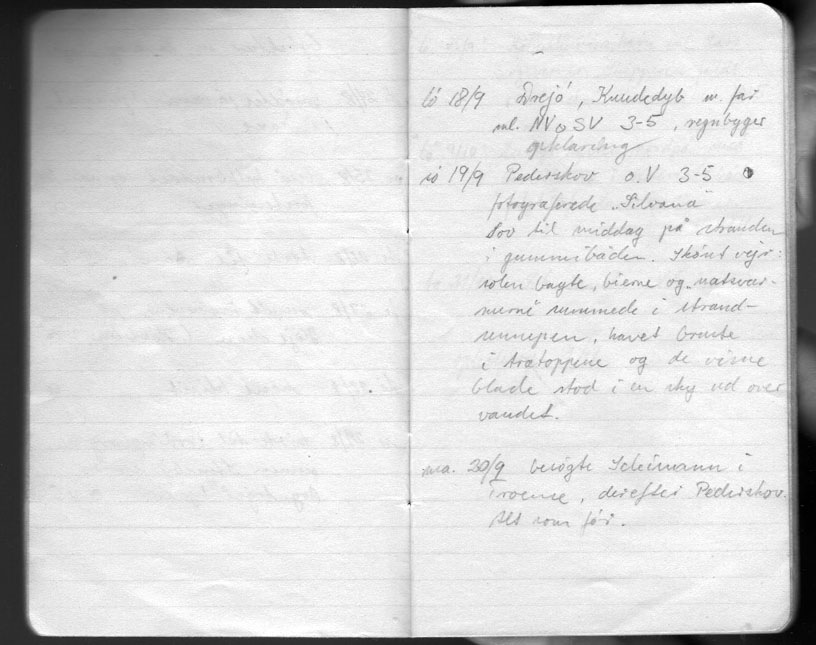 lö 18/9 Drejö, Knudedyb m. far
ml. NV o SV 3-5, regnbyger
opklaring
sö 19/9 Pederskov o. V 3-5
fotograferede "Silvana"
Sov til middag på stranden
i gummibåden. Skönt vejr:
solen bagte, bierne og natsvær-
merne summede i strand-
sennepen, havet bruste
i trætoppene og de visne
blade stod i en sky ud over
vandet.
ma. 20/9 besögte Scheimann i
troense, derefter Pederskov.
Alt som för.